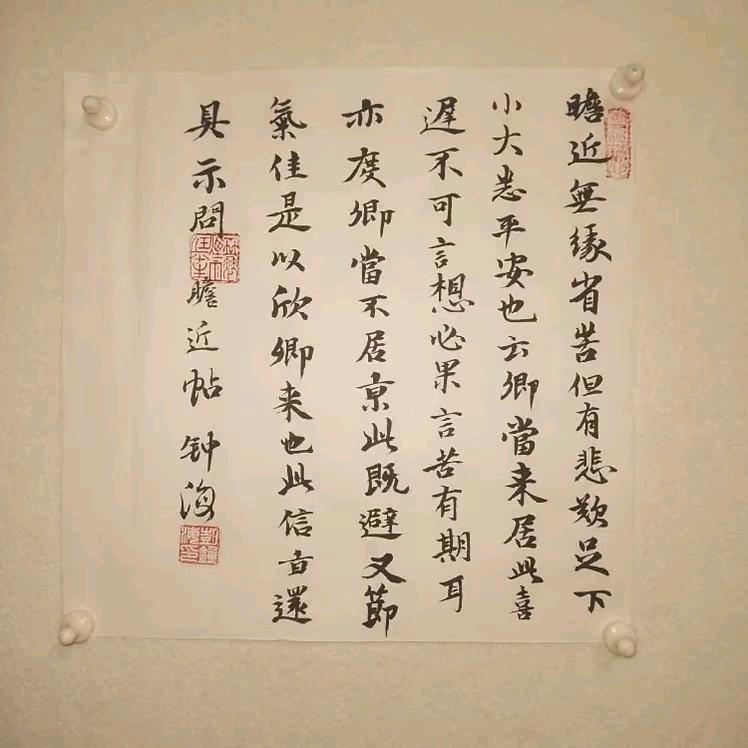 瞻近無緣省苦但有悲歎足下
小大悉平安也云卿當来居此喜
遲不可言想必果言苦有期耳
亦度卿當不居京此既避又節
氣佳是以欣卿来也此信旨還
具示問 瞻近帖 钟海